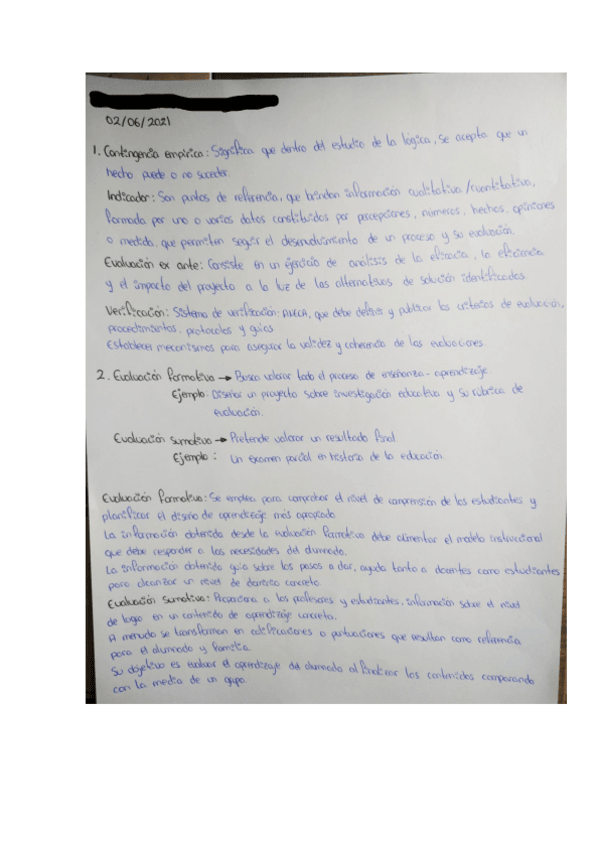 02/06/2021
1. Contingencia empírica: Significa que dentro del estudio de la lógica, se acepta que un
hecho puede o no suceder.
Indicador: Son puntos de referencia, que brindan información cualitativa/cuantitativa,
formada por uno o varios datos constituidos por percepciones, números, hechos, opiniones
o medida, que permiten seguir el desenvolvimiento de un proceso y su evaluación.
Evaluación ex ante: Consiste en un ejercicio de análisis de la eficacia, la eficiencia
y el impacto del proyecto a la luz de las alternativas de solución identificadas.
Verificación: Sistema de verificación: , que debe definir y publicar los criterios de evaluación,
procedimientos, protocolos y guías.
Establecer mecanismos para asegurar la validez y coherencia de las evaluaciones.
2. Evaluación formativa → Busca valorar todo el proceso de enseñanza-aprendizaje.
Ejemplo: Diseñar un proyecto sobre investigación educativa y su rúbrica de
evaluación.
Evaluación sumativa → Pretende valorar un resultado final.
Ejemplo: Un examen parcial en historia de la educación.
Evaluación formativa: Se emplea para comprobar el nivel de comprensión de los estudiantes y
planificar el diseño de aprendizaje más apropiado.
La información obtenida desde la evaluación formativa debe alimentar el modelo instruccional
que debe responder a las necesidades del alumnado.
La información obtenida guía sobre los pasos a dar, ayuda tanto a docentes como estudiantes
para alcanzar un nivel de dominio concreto.
Evaluación Sumativa: Proporciona a los profesores y estudiantes, información sobre el nivel
de logro en un contenido de aprendizaje concreto.
A menudo se transforman en calificaciones o puntuaciones que resultan como referencia
para el alumnado y familia.
Su objetivo es evaluar el aprendizaje del alumnado al finalizar los contenidos comparando
con la media de un grupo.